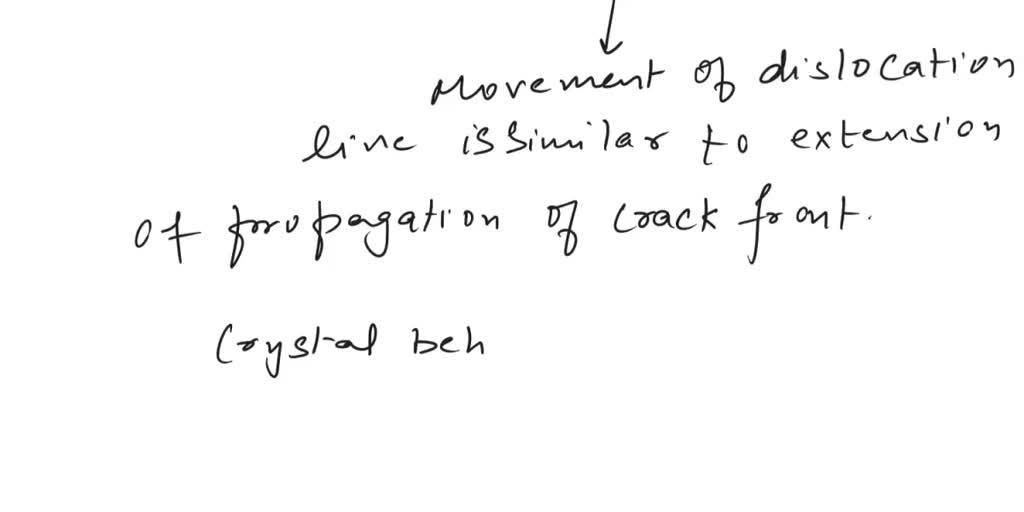 Movement of dislocation
line is similar to extension
of propagation of crack front.
Crystal beh